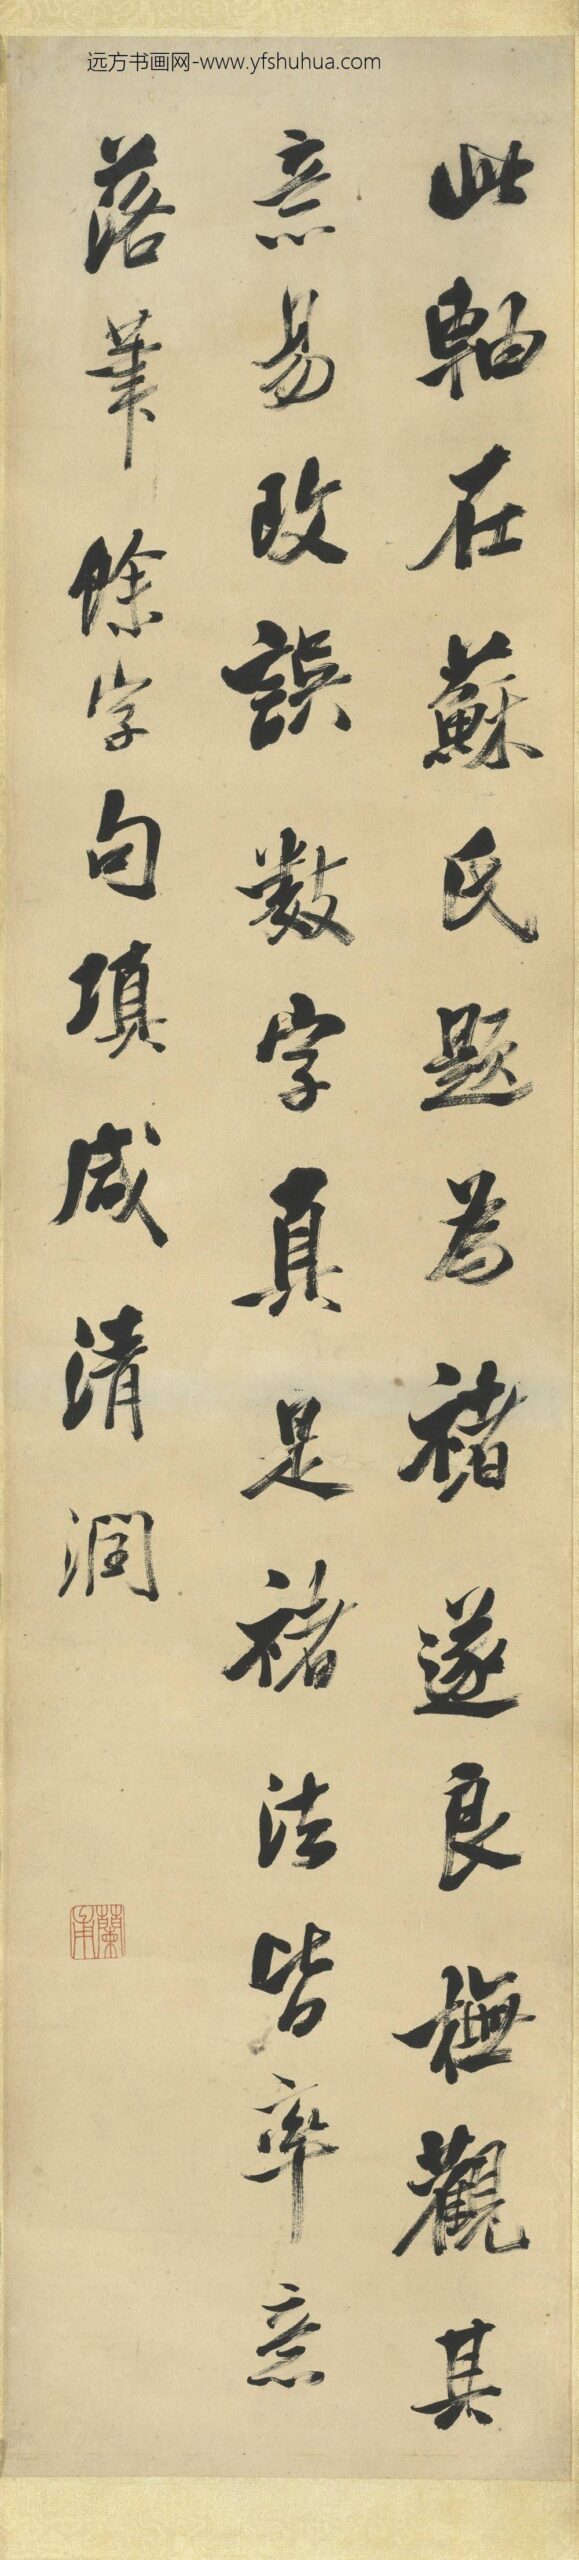 远方书画网-www.yfshuhua.com
此軸在蘇氏題為褚遂良橅觀其
意易改誤數字真是褚法皆率意
落筆餘字句填咸清潤